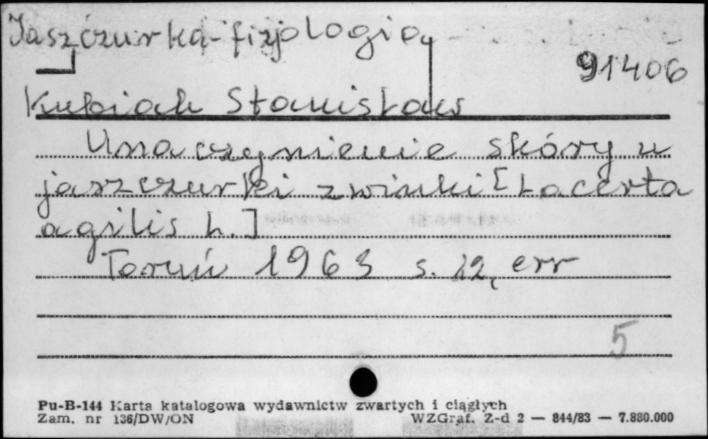 Jaszczurka-fizjologia
91406
Kubiak Stanisław
Unaczynienie skóry u
jaszczurki zwinki [Lacerta
agilis L.]
Toruń 1963 s. 22, err
5
Pu-B-144 Karta katalogowa wydawnictw zwartych i ciągłych
Zam. nr 136/DW/ON WZGraf. Z-d 2 — 844/83 — 7.880.000